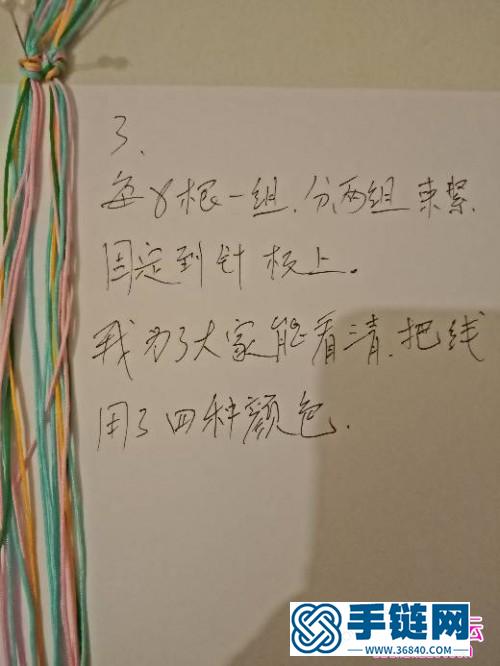 3、
每8根一组、分两组束紧
固定到针板上。
我为了大家能看清、把线
用了四种颜色.
手链网
www.36840.com
云